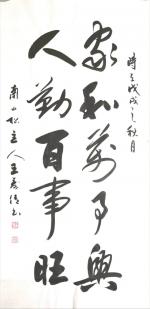 家和萬事興
人勤百事旺
時在戊戌之秋月
南山松主人王秀德書